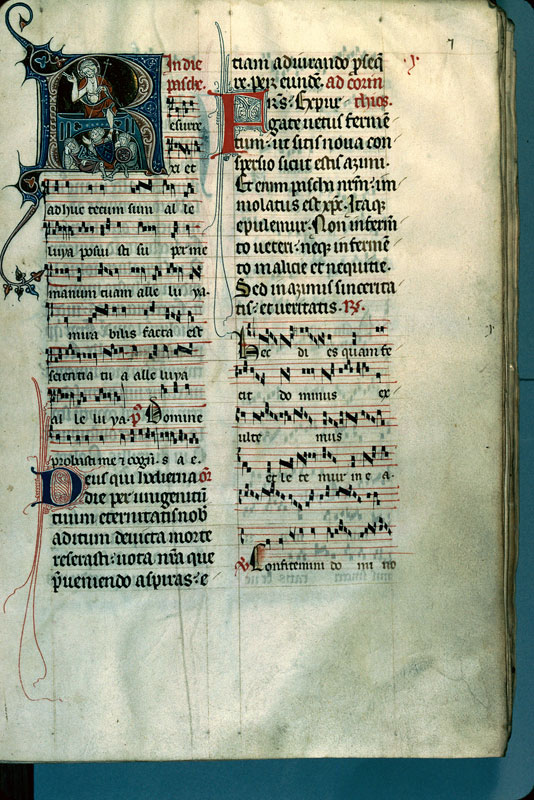 7
In die
pasche.
Resurre
xi et
adhuc tecum sum al le
luya posui sti su per me
manum tuam alle lu ya.
mira bilis facta est
scientia tu a alle luya
al le lu ya. p̃ Domine
probasti me ⁊ cogñ. s a e.
Deus qui hodierna or̃
die per unigenitũ
tuum eternitatis nob̃
aditum devicta morte
reserasti: vota nr̃a que
p̃veniendo aspiras: e
tiam adiuvando p̃seq̃
re. per eundẽ. ad corin
Fr̃s: Expur thios.
gate vetus fermẽ
tum: ut sitis nova con
spersio sicut estis azimi.
Et enim pascha nr̃m: im
molatus est xp̃c. Itaq̃
epulemur. Non in ferm̃
to veteri: neq̃ in fermẽ
to malicie et nequitie.
Sed in azimis sincerita
tis: et veritatis. R̃.
Hec di es quam fe
cit do minus ex
ulte mus
et le te mur in e a.
ṽ Confitemini do mi no